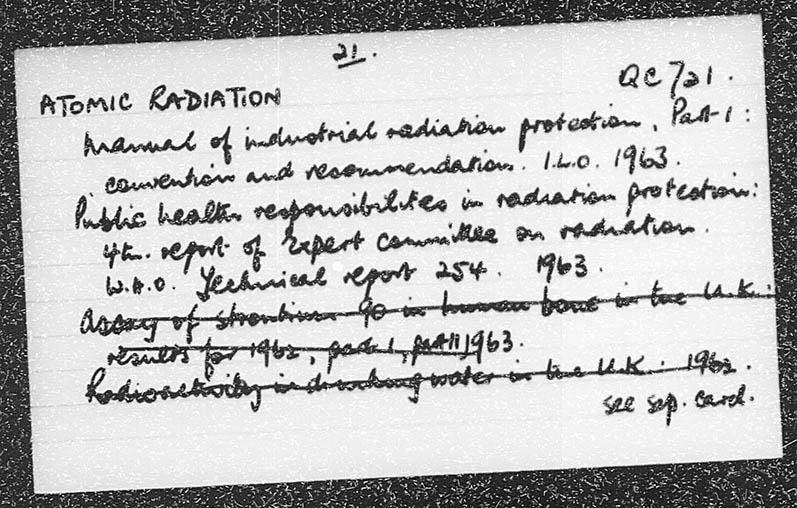 21.
QC 721.
ATOMIC RADIATION
Manual of industrial radiation protection, Part 1:
convention and recommendation. I.L.O. 1963.
Public health responsibilities in radiation protection:
4th. report of Expert Committee on radiation.
W.H.O. Technical report 254. 1963.
Assay of strontium 90 in human bone in the U.K.:
results for 1962, part 1, part II 1963.
Radioactivity in drinking water in the U.K. 1962.
see sep. card.